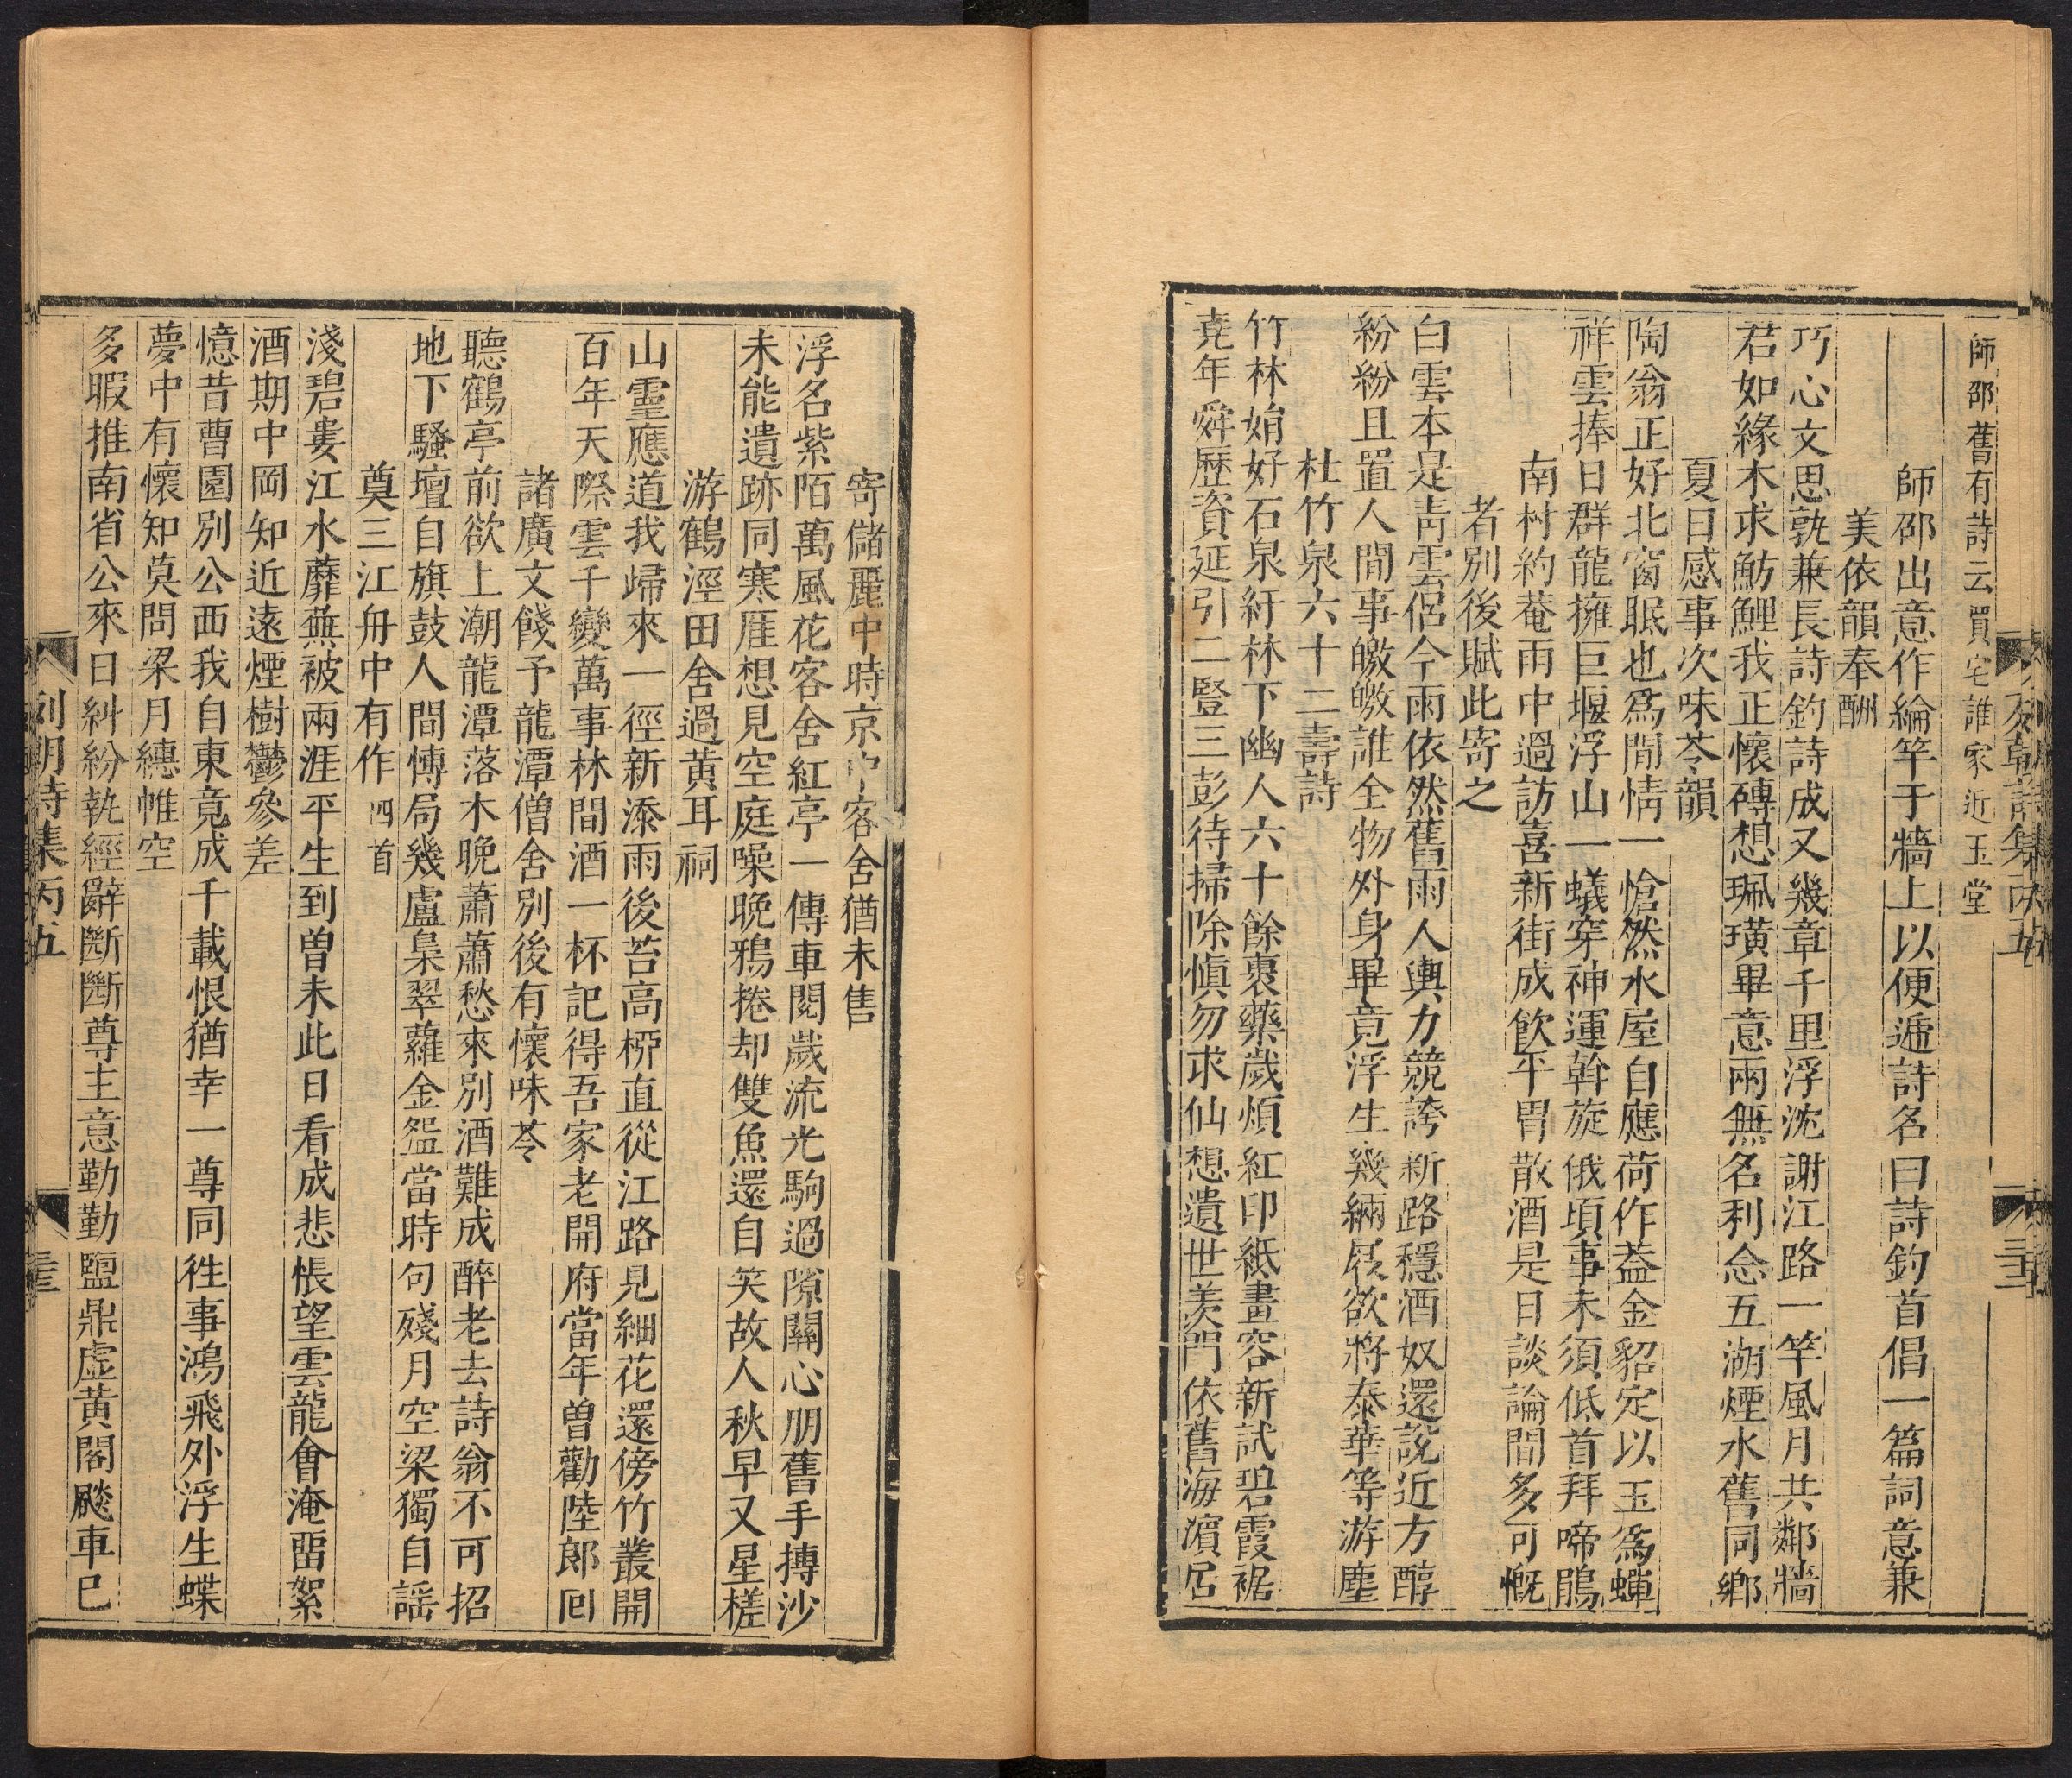 師邵舊有詩云買宅誰家近玉堂
師邵出意作綸竿于牆上以便遞詩名曰詩釣首倡一篇詞意兼
美依韻奉酬
巧心文思孰兼長詩釣詩成又幾章千里浮沈謝江路一竿風月共鄰牆
君如緣木求魴鯉我正懷磚想珮璜畢意兩無名利念五湖煙水舊同鄉
夏日感事次味芩韻
陶翁正好北窗眠也爲閒情一愴然水屋自應荷作葢金貂定以玉爲蟬
祥雲捧日群龍擁巨堰浮山一蟻穿神運斡旋俄頃事未須低首拜啼鵑
南村約菴雨中過訪喜新街成飲平胃散酒是日談論間多可慨
者別後賦此寄之
白雲本是靑雲侶今雨依然舊雨人輿力競誇新路穩酒奴還說近方醇
紛紛且置人閒事皦皦誰全物外身畢竟浮生幾緉屐欲將泰華等游塵
杜竹泉六十二壽詩
竹林媋好石泉紆林下幽人六十餘裹藥歲煩紅印紙畫容新試碧霞裾
堯年舜歷資延引二豎三彭待掃除愼勿求仙想遺世羨門依舊海濵居
寄儲麗中時京中客舍猶未售
浮名紫陌萬風花客舍紅亭一傳車閱歲流光駒過隙關心朋舊手摶沙
未能遺跡同寒厓想見空庭噪晚鴉捲却雙魚還自笑故人秋早又星槎
游鶴涇田舍過黄耳祠
山靈應道我歸來一徑新添雨後苔高桺直從江路見細花還傍竹叢開
百年天際雲千變萬事林間酒一杯記得吾家老開府當年曽勸陸郞囘
諸廣文餞予龍潭僧舍別後有懷味芩
聽鶴亭前欲上潮龍潭落木晚蕭蕭愁來別酒難成醉老去詩翁不可招
地下騷壇自旗鼓人間愽局幾盧梟翠蘿金盌當時句殘月空梁獨自謡
奠三江舟中有作四首
淺碧婁江水蘼蕪被兩涯平生到曽未此日看成悲悵望雲龍會淹畱絮
酒期中岡知近遠煙樹鬱參差
憶昔曹園別公西我自東竟成千載恨猶幸一尊同徃事鴻飛外浮生蝶
夢中有懷知莫問梁月繐帷空
多暇推南省公來日糾紛執經辭斷斷尊主意勤勤鹽鼎虛黄閣飈車已
列朝詩集丙五